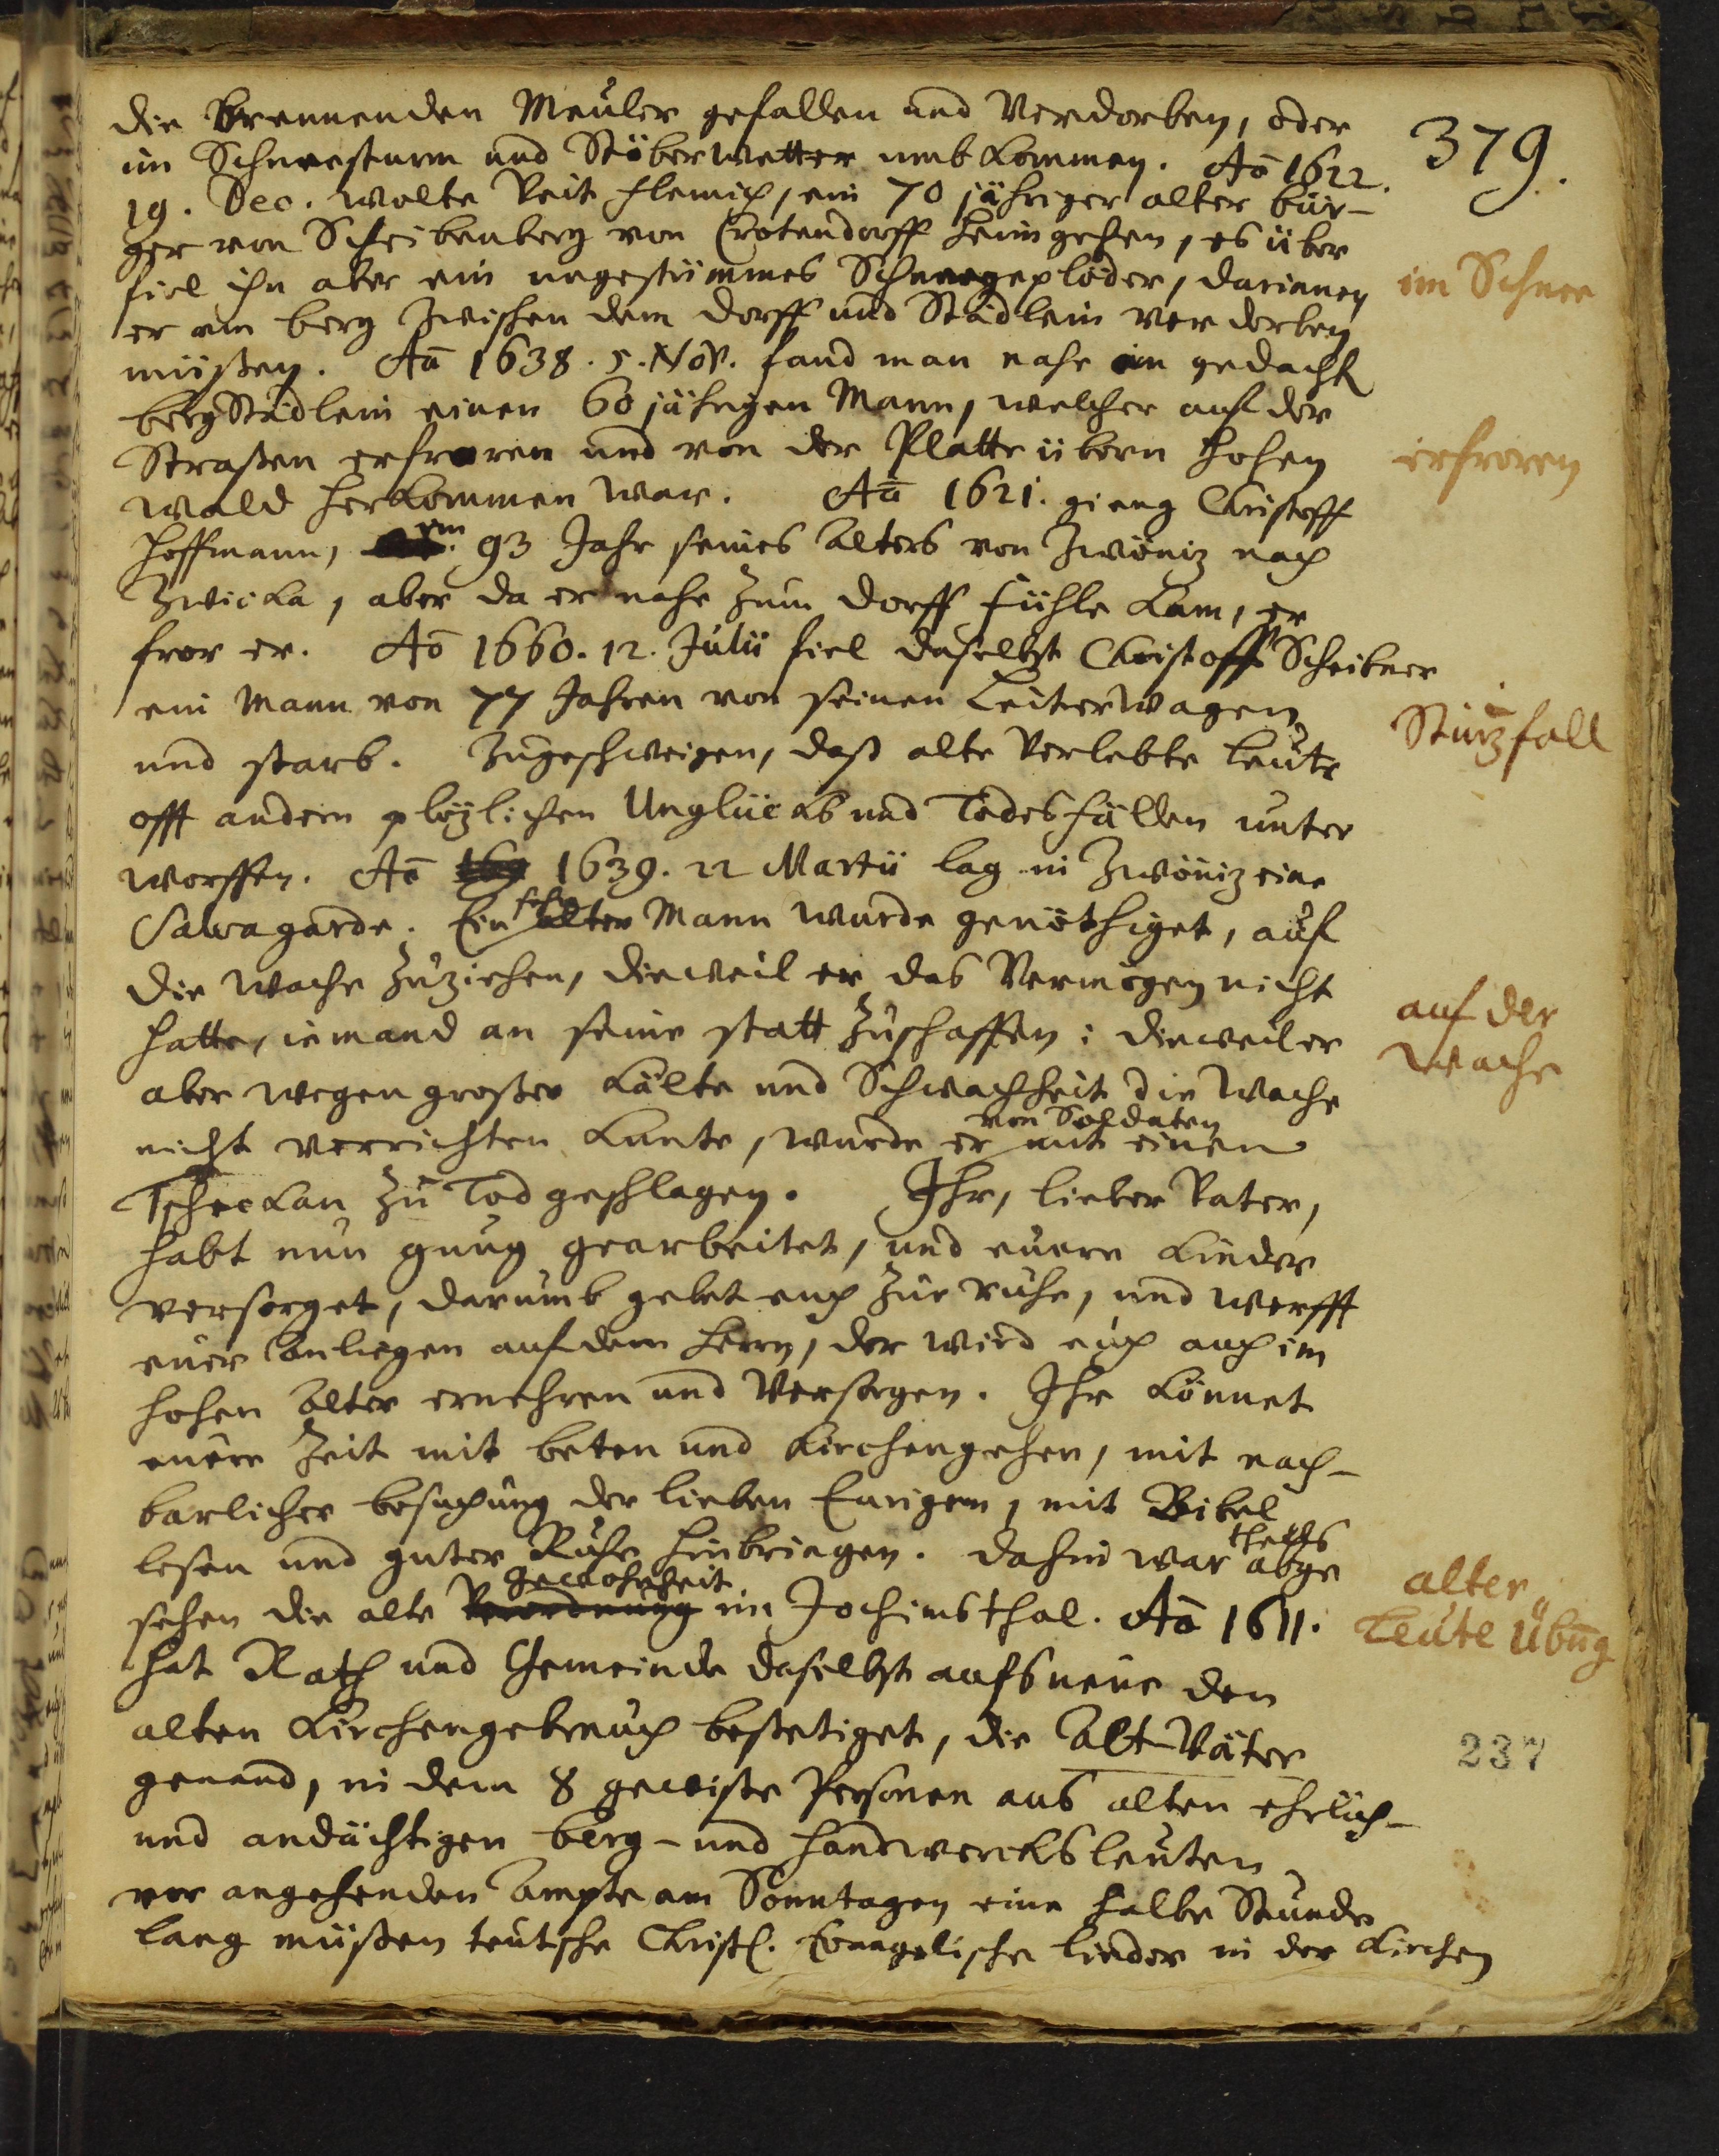 die brennenden Meuler gefallen und Verdorben, oder
379.
im Schneesturm und Stöberwetter umbkommen. Aō 1622.
19. Dec. wolte Veit Flemich, ein 70 jähriger alter bür-
ger von Scheibenberg von Crotendorff heimgehen, es über
fiel ihn aber ein ungestümmes Schneegeplöder, darinnen
im Schnee
er am berg zwischen dem dorff und Städlein verderben
müßen. Aō 1638. 5. Nov. fand man nahe an gedacht
bergStädlein einen 60 jährigen Mann, welcher auf der
Straßen erfroren und von der Platte übern hohen
erfroren
wald herkommen war. Aō 1621. gieng Christoff
Hoffmann, im 93 Jahr seines Alters von Zwöniz nach
Zwicka, aber da er nahe zum dorff kam, er
fror er. Aō 1660. 12. Julii fiel daselbst Christoff Scheibner
ein Mann von 77 Jahren von seinen Leiterwagen
Sturzfall
und starb. Zugeschweigen, daß alte Verlebte leute
offt andern plözlichen Unglücks und Todesfällen unter
worffen. Aō 1639. 22 Martii lag in Zwöniz eine
Salvagarde. Ein sehr alter Mann wurde genöthiget, auf
die Wache zuziehen, dieweil er das Vermögen nicht
hatte, iemand an seine statt zuschaffen: dieweil er
auf der
Wache
aber wegen großer Kälte und Schwachheit die Wache
nicht verrichten kunte, wurde er von Soldaten mit einen
Tscheckan zu Tod geschlagen. Ihr, lieber Vater,
habt nun gnug gearbeitet, und euere Kinder
versorget, darumb gebet euch zur ruhe, und werfft
euer Anliegen auf dem Herrn, der wird euch auch im
hohen Alter ernehren und Versorgen. Ihr könnet
euere Zeit mit beten und Kirchengehen, mit nach-
barlicher besuchung der lieben Eurigen, mit Bibel
lesen und guter Ruhe hinbringen. dahin war theils abge
sehen die alte Verordnung gewohnheit im Jochimsthal. Aō 1611.
alter
Leute Übung
hat Rath und Gemeinde daselbst aufs neue den
alten Kirchengebrauch bestetiget, die Alt-Väter
237
genand, in dem 8 gewiße Personen aus alten ehrlich-
und andächtigen berg- und handwercksleuten
vor angehenden Ampte am Sonntagen eine halbe Stunde
lang müßen teutsche Christl. Evangelische lieder in der Kirchen